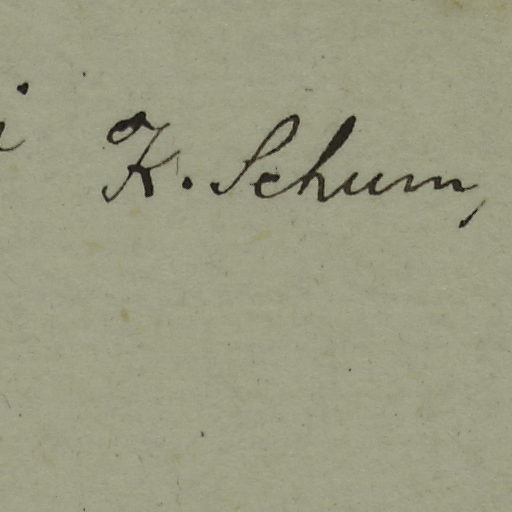 i K. Schum,